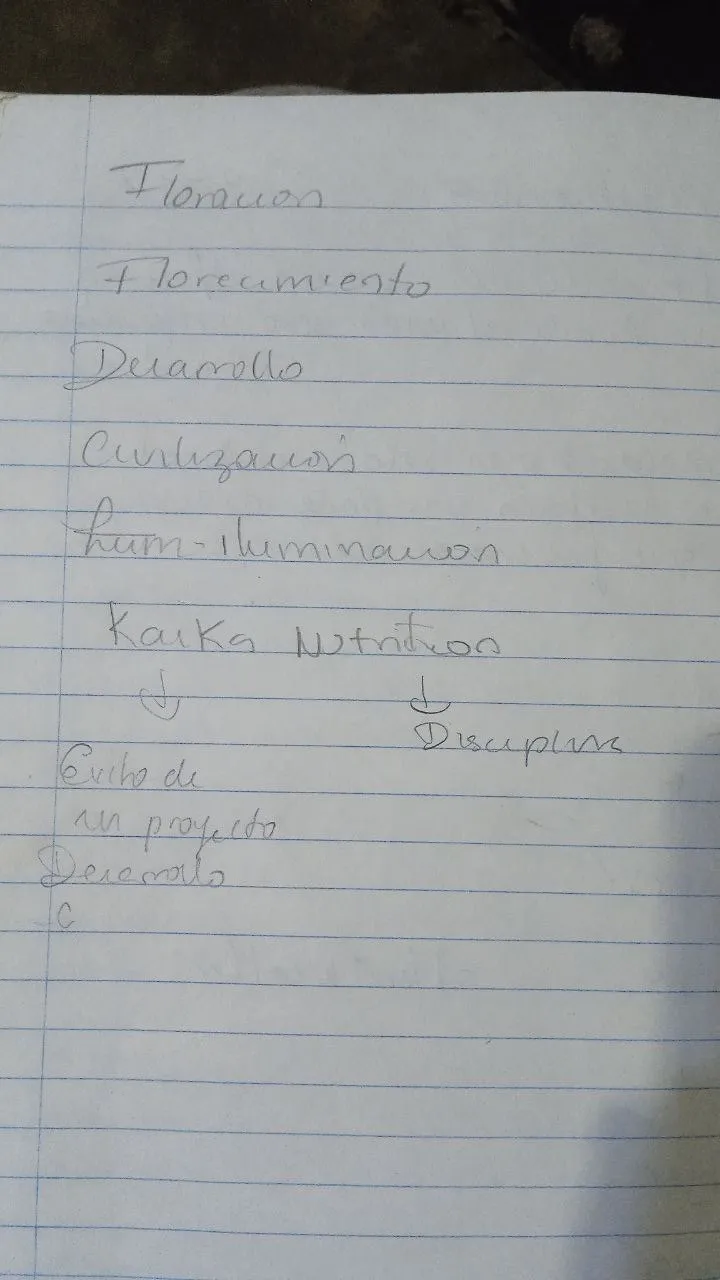 Floracion
Florecimiento
Desarrollo
Civilización
Lum-iluminacion
Kaika Nutrition
Disciplina
Exito de
un proyecto
Desarrollo
C